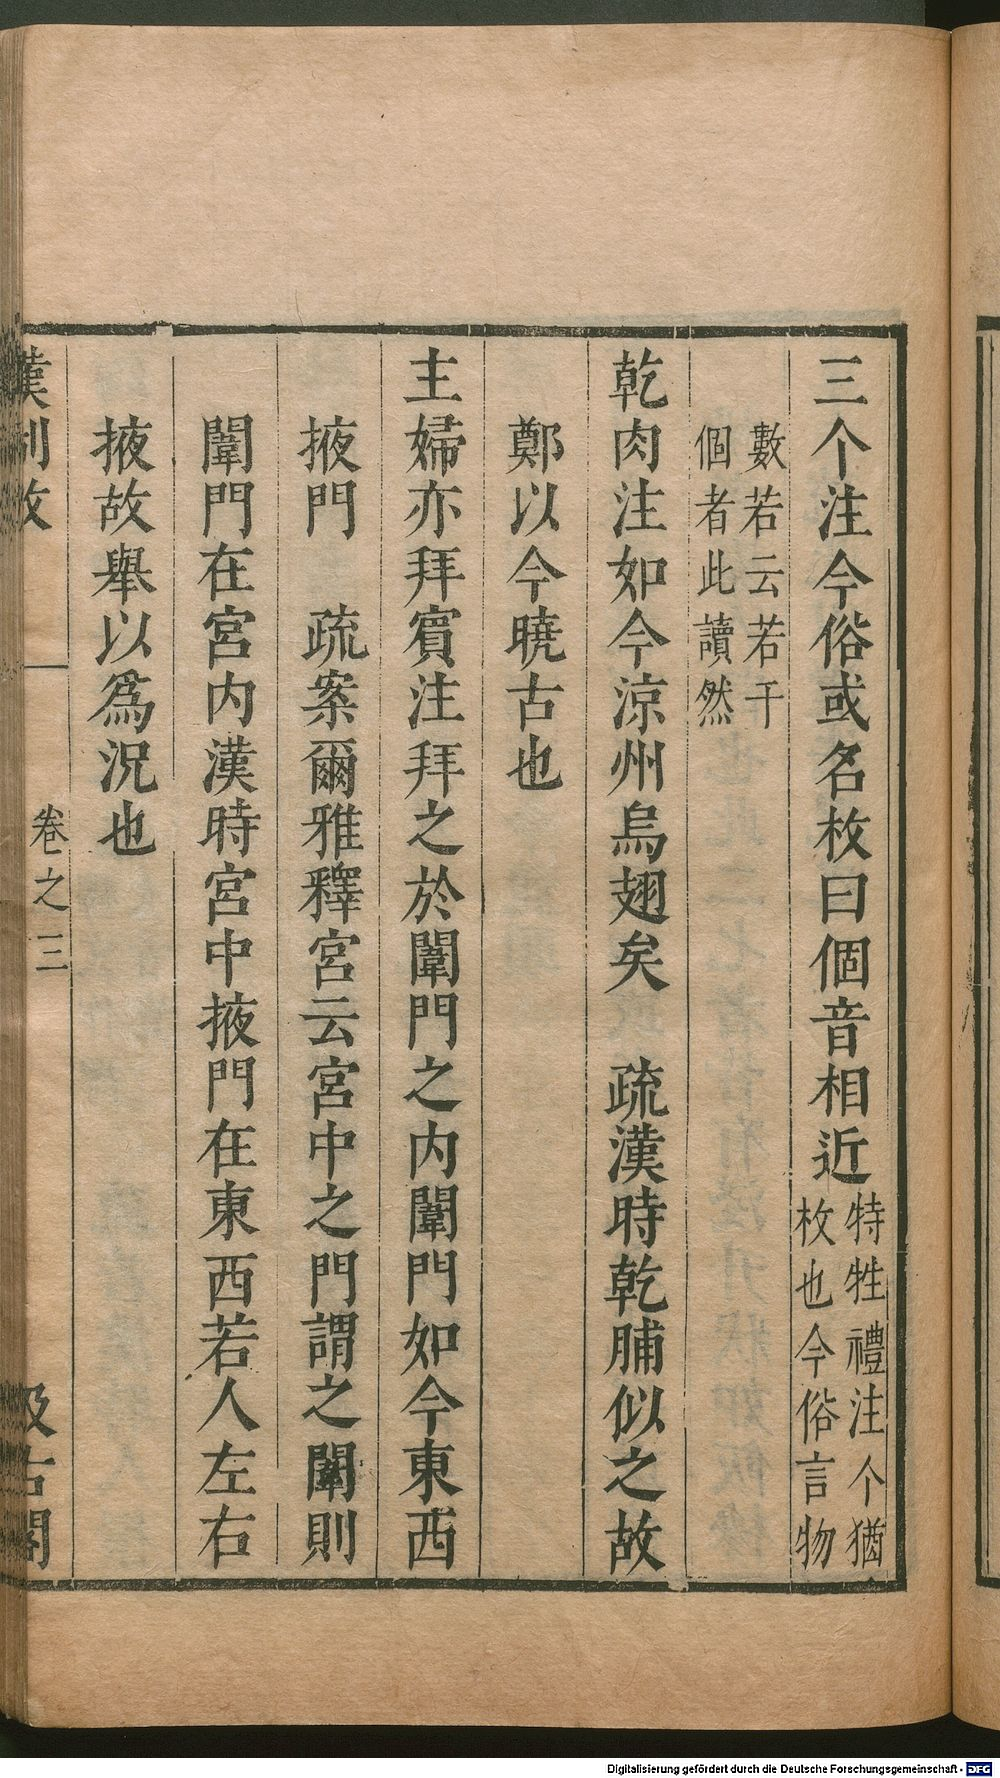 三个注今俗或名枚曰個音相近特牲禮注个猶
枚也今俗言物
數若云若干
個者此讀然
乾肉注如今涼州烏翅矣　疏漢時乾脯似之故
鄭以今曉古也
主婦亦拜賓注拜之於闈門之内闈門如今東西
掖門　疏案爾雅釋宮云宮中之門謂之闈則
闈門在宮内漢時宮中掖門在東西若人左右
掖故舉以爲況也
漢制攷
卷之三
汲古閣
Digitalisierung gefördert durch die Deutsche Forschungsgemeinschaft - DFG